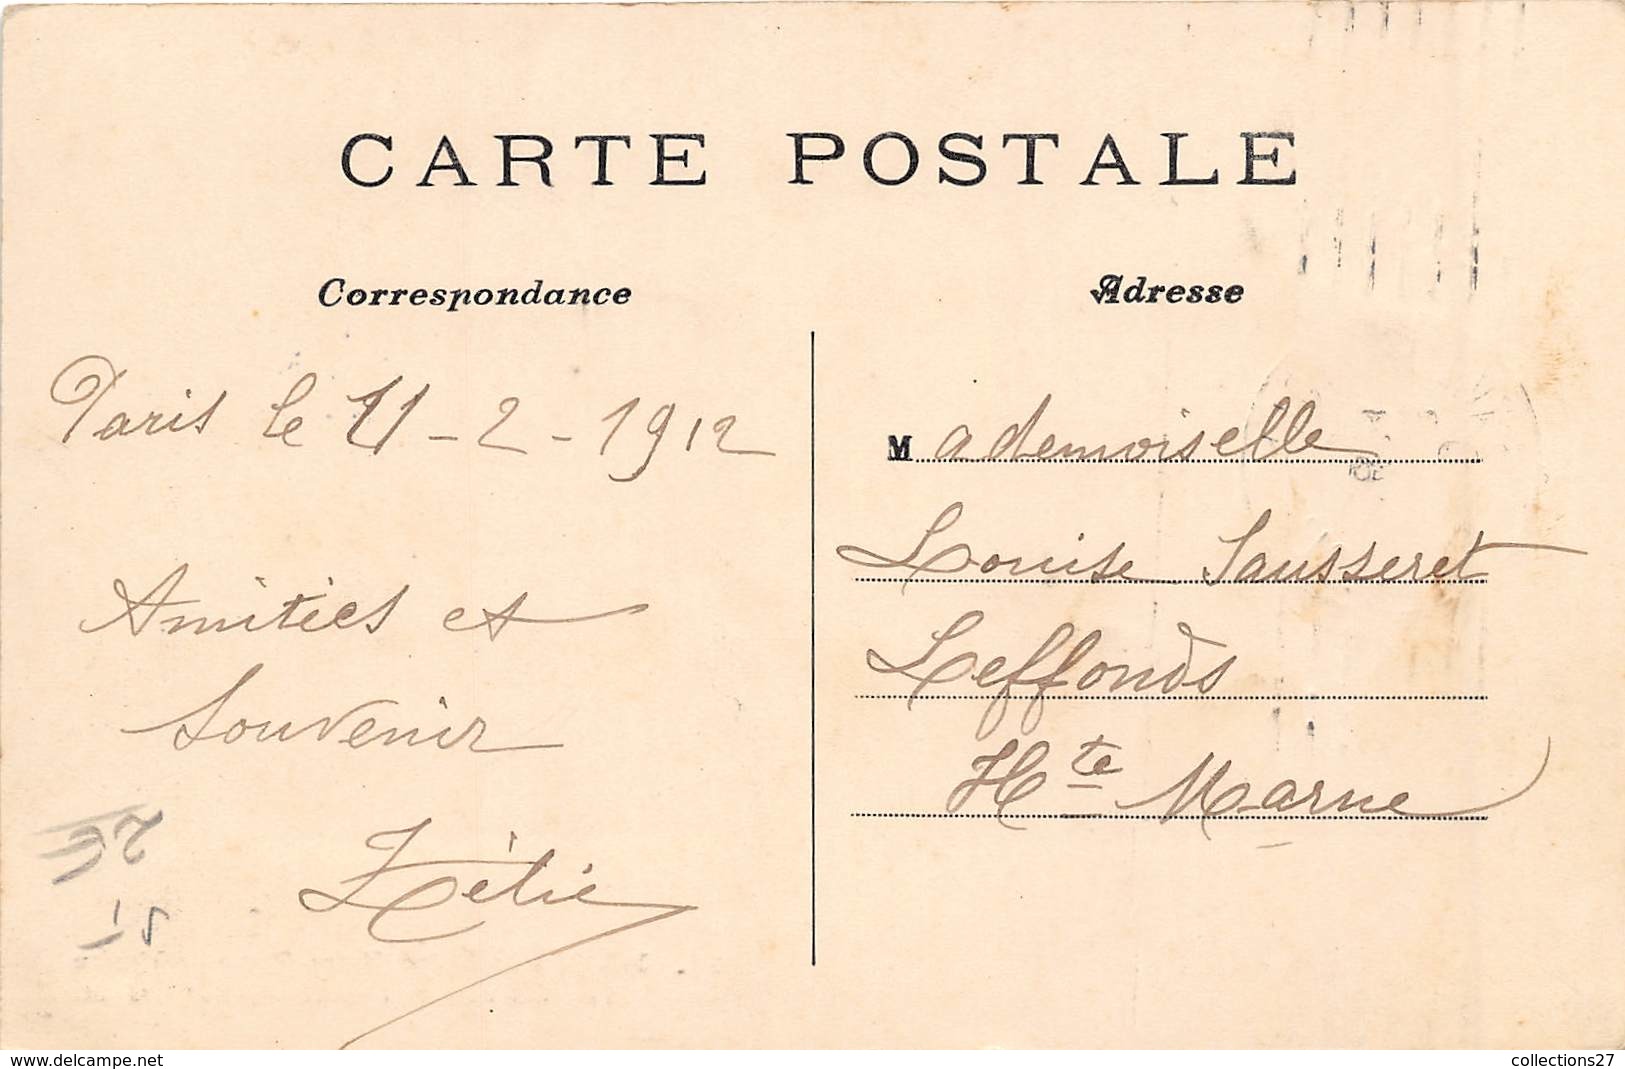 CARTE POSTALE
Correspondance
Paris le 21-2-1912
Amitiés et
Souvenir
Zélie
Adresse
Mademoiselle
Louise Sausseret
Leffonds
Hte Marne
www.delcampe.net
collections27